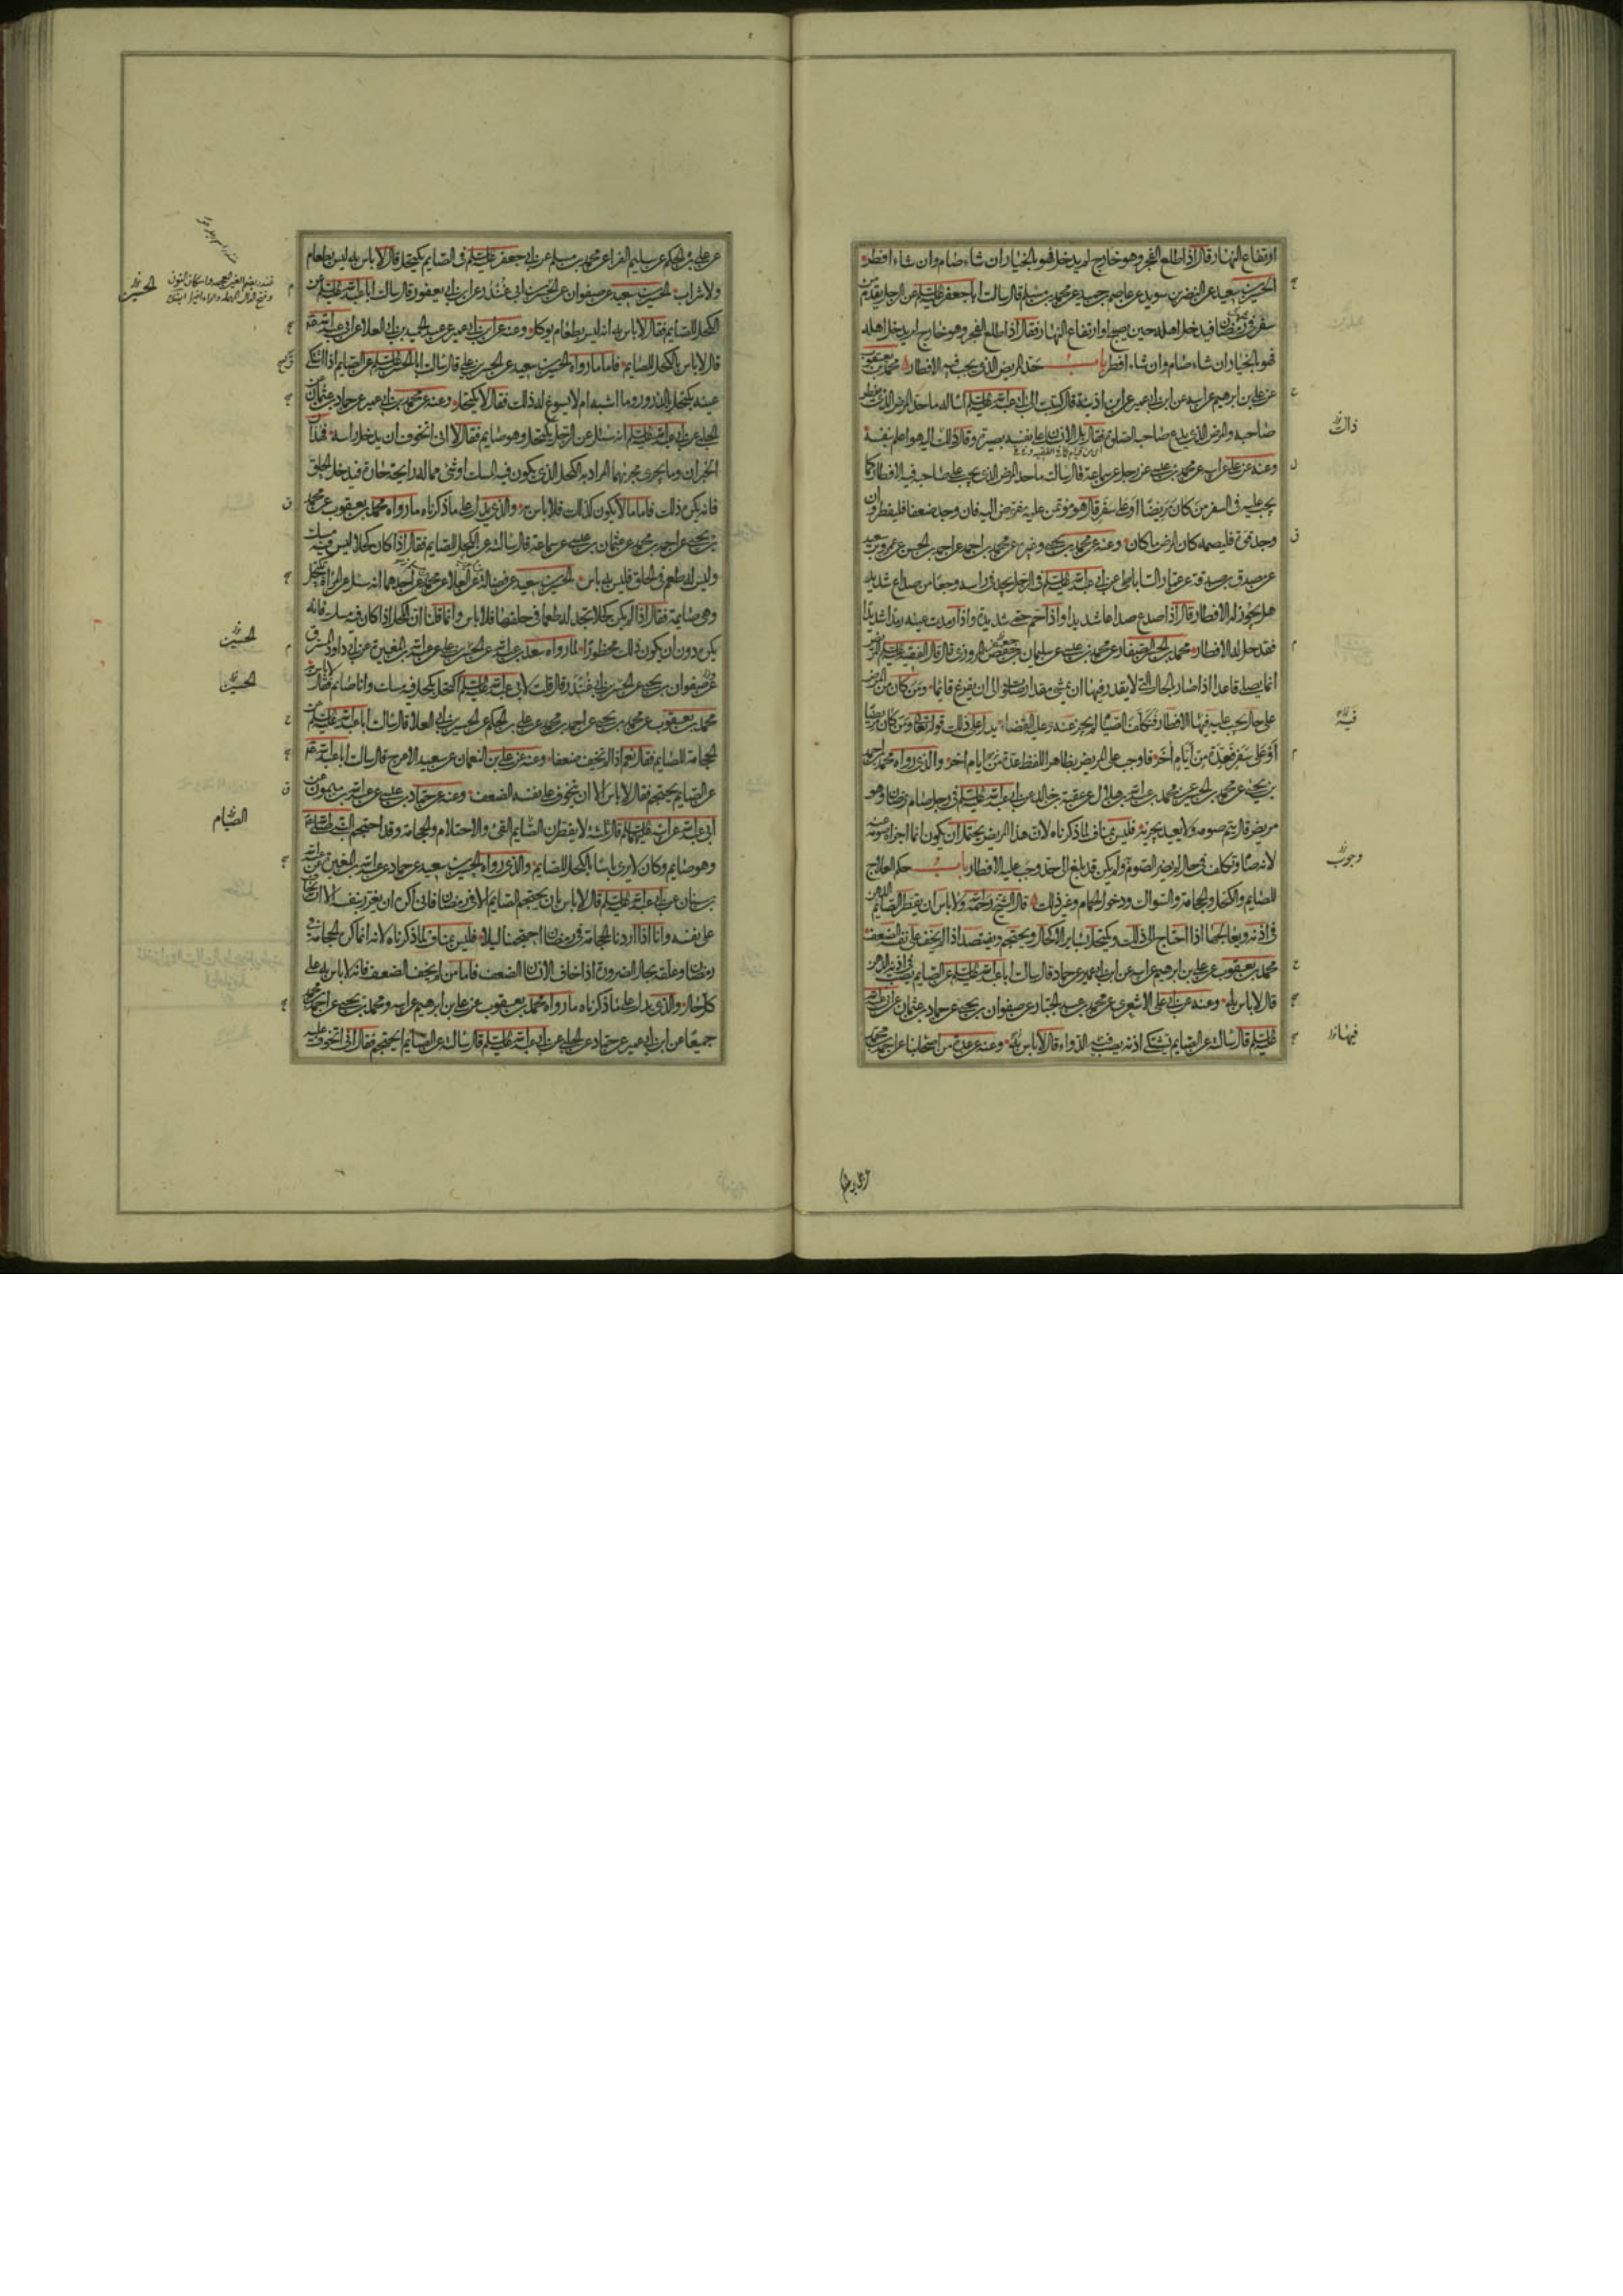 ارتفاع النهار قال اذا طلع الفجر وهو خارج لم يدخل فهو بالخيار ان شاء صام وان شاء افطر
الحسين بن سعيد عن النضر بن سويد عن عاصم بن حميد عن محمد بن مسلم قال سالت ابا جعفر عليه السلم عن الرجل يقدم من
سفر في رمضان فيدخل اهله حين يصبح او ارتفاع النهار فقال اذا طلع الفجر وهو خارج لم يدخل اهله
فهو بالخيار ان شاء صام وان شاء افطر باب حد المرض الذي يجب فيه الافطار محمد بن يعقوب
عن علي بن ابرهيم عن ابيه عن ابن ابي عمير عن ابن اذينة قال كتبت الى ابي عبد الله عليه السلم اساله ما حد المرض الذي يفطر
صاحبه والمرض الذي يدع صاحبه الصلوة فقال بل الانسان على نفسه بصيرة وقال ذلك اليه هو اعلم بنفسه
وعنه عن علي عن ابيه عن محمد بن عيسى عن رجل عن سماعة قال سالت ما حد المرض الذي يجب على صاحبه فيه الافطار كما
يجب عليه في السفر من كان مريضا او على سفر قال هو مؤتمن عليه مفوض اليه فان وجد ضعفا فليفطر وان
وجد قوة فليصمه كان المرض ما كان وعنه عن محمد بن يحيى وغيره عن محمد بن احمد عن احمد بن الحسن عن عمرو بن سعيد
عن مصدق بن صدقة عن عمار الساباطي عن ابي عبد الله عليه السلم في الرجل يجد في راسه وجعا من صداع شديد
هل يجوز له الافطار قال اذا صدع صداعا شديدا واذا حم حمى شديدة واذا رمدت عينه رمدا شديدا
فقد حل له الافطار محمد بن الحسن الصفار عن محمد بن عيسى عن سليمان بن حفص المروزي قال قال الفقيه عليه السلم المريض
انما يصلي قاعدا اذا صار بالحال التي لا يقدر فيها ان يمشي مقدار صلوته الى ان يفرغ قايما ومن كان من المرض
على حال يجب عليه فيها الافطار فتكلف الصيام لم يجز عنه وعليه القضاء يدل على ذلك قوله تعالى ومن كان مريضا
او على سفر فعدة من ايام اخر فاوجب على المريض بظاهر اللفظ عدة من ايام اخر والذي رواه محمد بن احمد
بن يحيى عن محمد بن الحسين عن محمد بن عبد الله بن هلال عن عقبة بن خالد عن ابي عبد الله عليه السلم في رجل صام رمضان وهو
مريض قال يتم صومه ولا يعيد يجزيه فليس بمناف لما ذكرناه لان هذا المريض يحتمل ان يكون انما اجزا عنه صومه
لانه صام وتكلف في حال لم يضر الصوم ولم يكن قد بلغ الى حد وجب عليه الافطار باب حكم العلاج
للصايم والكحل والحجامة والسواك ودخول الحمام وغير ذلك قال الشيخ رحمه الله ولا باس ان يقطر الصايم الدهن
في اذنه ويعالجها اذا احتاج الى ذلك ويكتحل بساير الاكحال ويحتجم ويفتصد اذا لم يخف على نفسه الضعف
محمد بن يعقوب عن علي بن ابرهيم عن ابيه عن ابن ابي عمير عن حماد قال سالت ابا عبد الله عليه السلم عن الصايم يصب في اذنه الدهن
قال لا باس به وعنه عن ابي علي الاشعري عن محمد بن عبد الجبار عن صفوان بن يحيى عن حماد بن عثمان عن ابي عبد الله
عليه السلم قال سالته عن الصايم يشتكي اذنه يصب فيه الدواء قال لا باس به وعنه عن عدة من اصحابنا عن احمد بن محمد
ذاك
فيه
وجوب
فيها
عن علي بن الحكم عن سليم الفرا عن محمد بن مسلم عن ابي جعفر عليه السلم في الصايم يكتحل قال لا باس به ليس بطعام
ولا شراب الحسين بن سعيد عن صفوان عن الحسين بن ابي غندر عن ابن ابي يعفور قال سالت ابا عبد الله عليه السلم عن
الكحل للصايم فقال لا باس به انه ليس بطعام يوكل وعنه عن ابن ابي عمير عن عبد الحميد بن ابي العلا عن ابي عبد الله
قال لا باس بالكحل للصايم فاما ما رواه الحسين بن سعيد عن الحسن بن علي قال سالت ابا الحسن عليه السلم عن الصايم اذا اشتكى
عينه يكتحل بالذرور وما اشبهه ام لا يسوغ له ذلك فقال لا يكتحل وعنه عن محمد بن ابي عمير عن حماد بن عثمان عن
الحلبي عن ابي عبد الله عليه السلم انه سئل عن الرجل يكتحل وهو صايم فقال لا اني اتخوف ان يدخل راسه فهذان
الخبران وما يجري مجريهما المراد به الكحل الذي يكون فيه المسك او شي مما له رايحة حادة فيدخل الحلق
فانه يكره ذلك فاما ما لا يكون كذلك فلا باس به والذي يدل على ما ذكرناه ما رواه محمد بن يعقوب عن محمد
بن يحيى عن احمد بن محمد عن عثمان بن عيسى عن سماعة قال سالته عن الكحل للصايم فقال اذا كان كحلا ليس فيه مسك
وليس له طعم في الحلق فليس به باس الحسين بن سعيد عن فضالة عن العلاء عن محمد عن احدهما انه سئل عن المراة تكتحل
وهي صايمة فقال اذا لم يكن كحلا تجد له طعما في حلقها فلا باس وانما قلنا ان الكحل اذا كان فيه مسك فانه
يكره دون ان يكون ذلك محظورا لما رواه سعد بن عبد الله عن الحسن بن علي عن عبد الله بن المغيرة عن ابي داود المسترق
عن صفوان بن يحيى عن الحسين بن ابي غندر قال قلت لابي عبد الله عليه السلم اكتحل بكحل فيه مسك وانا صايم فقال لا باس به
محمد بن يعقوب عن محمد بن يحيى عن احمد بن محمد عن علي بن الحكم عن الحسين بن ابي العلا قال سالت ابا عبد الله عليه السلم عن
الحجامة للصايم فقال نعم اذا لم يخف ضعفا وعنه عن علي بن النعمان عن سعيد الاعرج قال سالت ابا عبد الله
عن الصايم يحتجم فقال لا باس الا ان يتخوف على نفسه الضعف وعنه عن حماد بن عيسى عن عبد الله بن ميمون عن
ابي عبد الله عن ابيه عليهما السلم قال ثلثة لا يفطرن الصايم القئ والاحتلام والحجامة وقد احتجم النبي
وهو صايم وكان لا يرى باسا بالكحل للصايم والذي رواه الحسين بن سعيد عن حماد عن عبد الله بن المغيرة عن عبد الله
بن سنان عن ابي عبد الله عليه السلم قال لا باس بان يحتجم الصايم الا في رمضان فاني اكره ان يغرر بنفسه الا ان لا يخاف
على نفسه وانا اذا اردنا الحجامة في رمضان احتجمنا ليلا فليس بمناف لما ذكرناه لانه انما كره الحجامة في
رمضان وعلقه بحال الضرورة اذا خاف الانسان الضعف فاما من لم يخف الضعف فانه لا باس به على
كل حال والذي يدل على ما ذكرناه ما رواه محمد بن يعقوب عن علي بن ابرهيم عن ابيه ومحمد بن يحيى عن احمد بن محمد
جميعا عن ابن ابي عمير عن حماد عن الحلبي عن ابي عبد الله عليه السلم قال سالته عن الصايم ايحتجم فقال اني اتخوف عليه
الحسين
الحسين
الحسين
الصيام